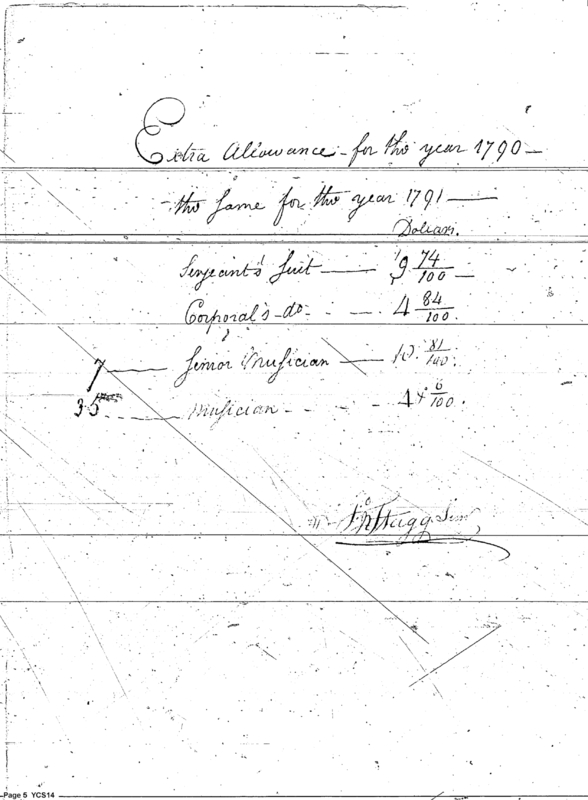 Extra Allowance - for the year 1790 -
the same for the year 1791 —
Dollars.
Serjeant's Suit — 9 74/100 —
Corporal's - do - - - 4 84/100.
7 — Senior Musician — 10. 81/100.
35 - - - Musician - - - 4 6/100.
Page 5 YCS14